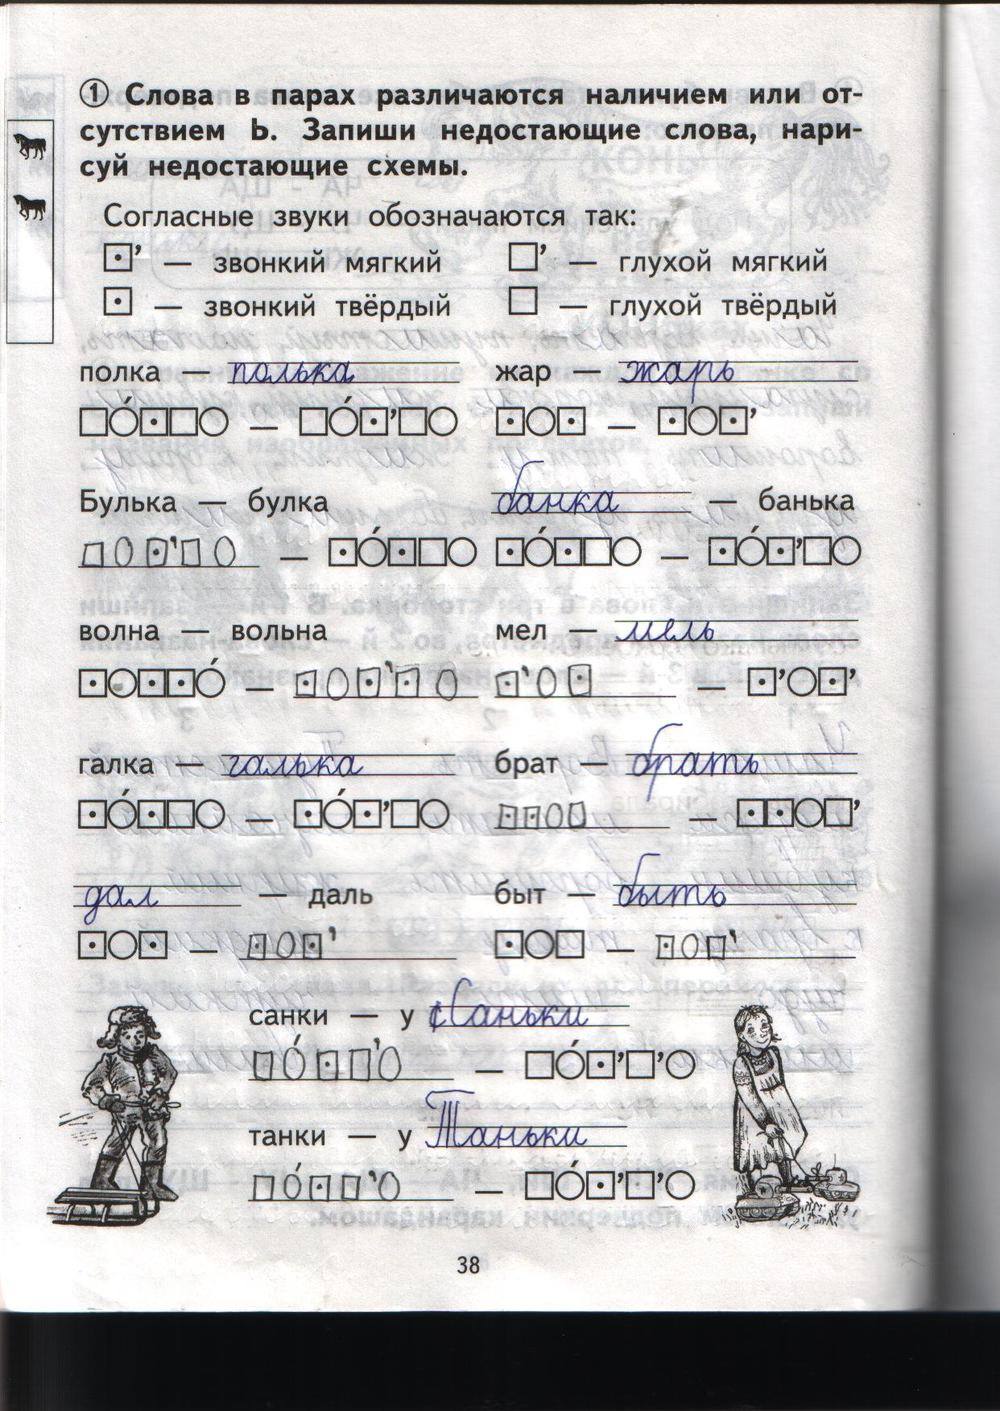 ① Слова в парах различаются наличием или от-
сутствием Ь. Запиши недостающие слова, нари-
суй недостающие схемы.
Согласные звуки обозначаются так:
— звонкий мягкий — глухой мягкий
— звонкий твёрдый — глухой твёрдый
полка — полька жар — жарь
Булька — булка банка — банька
волна — вольна мел — мель
галка — галька брат — брать
дал — даль быт — быть
санки — у Саньки
танки — у Таньки
38